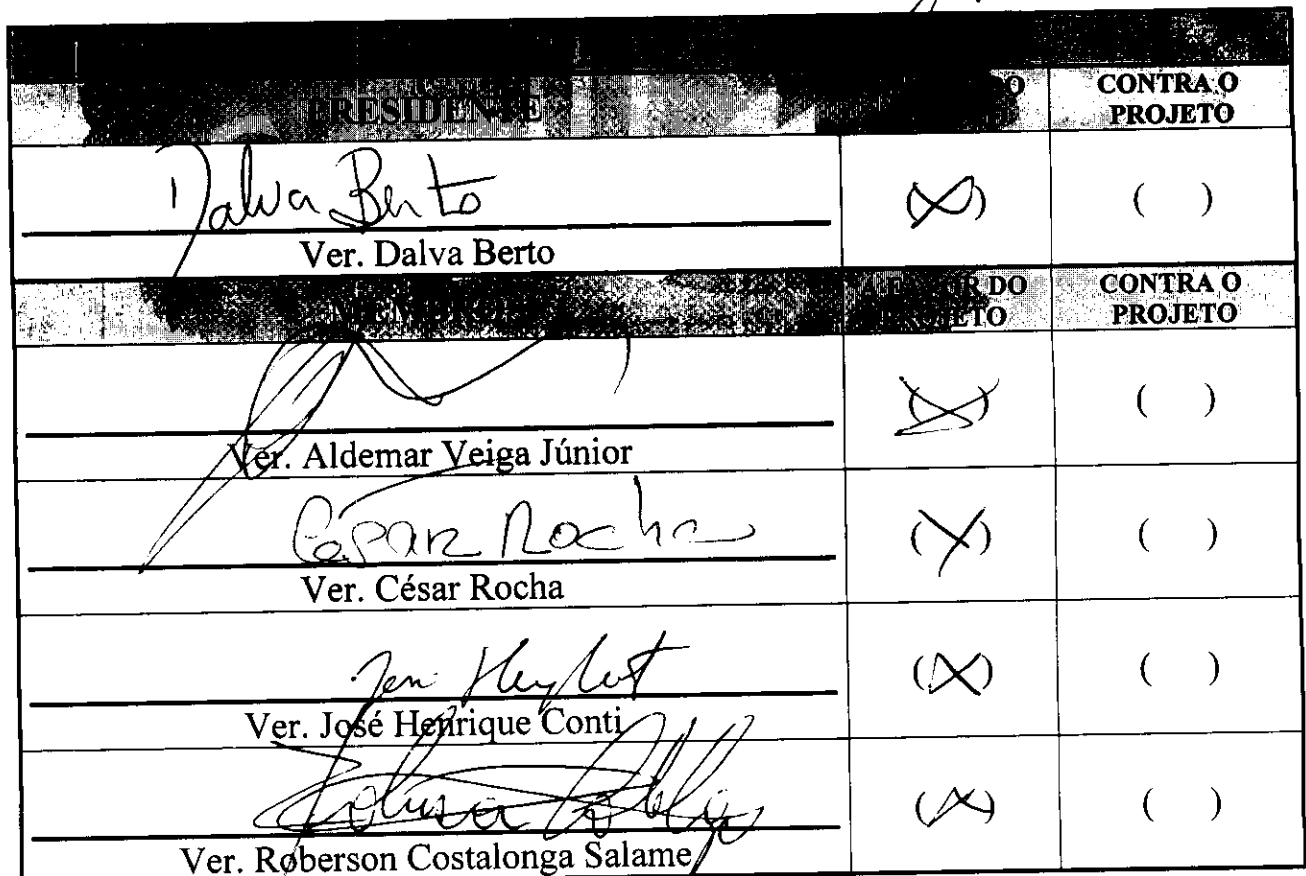 PRESIDENTE
CONTRA O
PROJETO
Dalva Berto
(X) ( )
Ver. Dalva Berto
MEMBROS
A FAVOR DO
PROJETO
CONTRA O
PROJETO
(X) ( )
Ver. Aldemar Veiga Júnior
César Rocha
(X) ( )
Ver. César Rocha
(X) ( )
Ver. José Henrique Conti
(X) ( )
Ver. Roberson Costalonga Salame